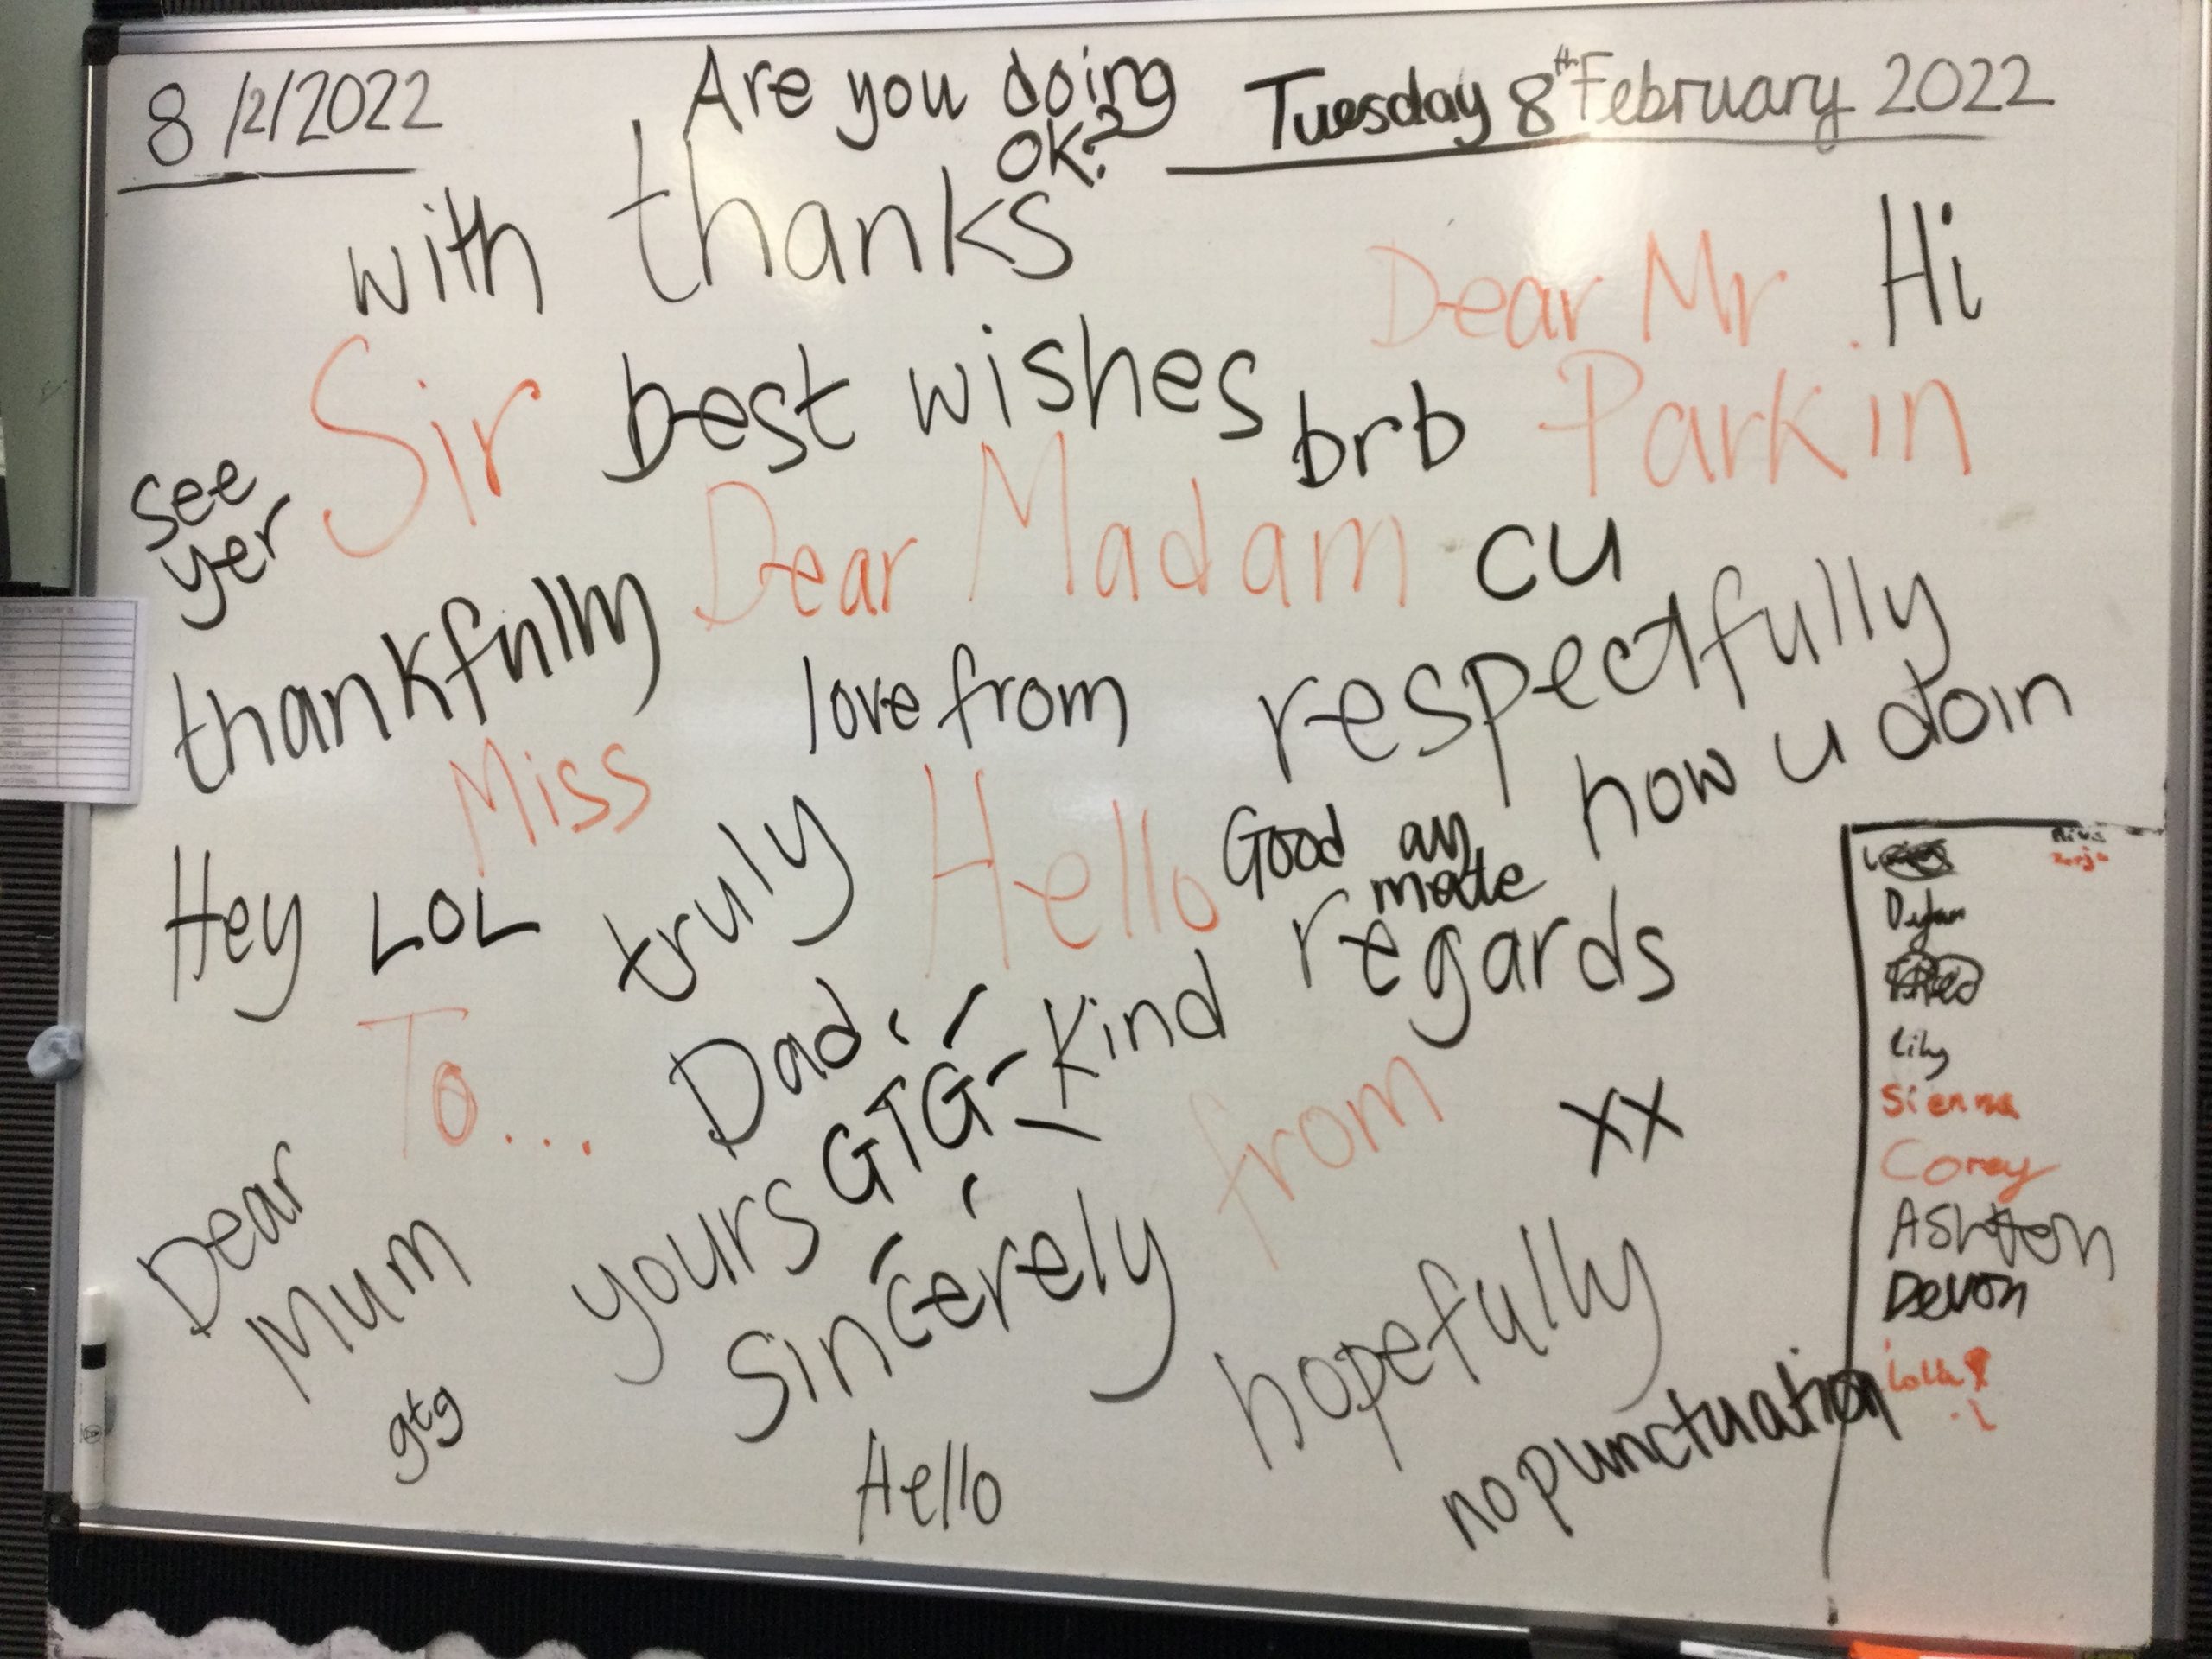 8/2/2022
Are you doing
OK?
Tuesday 8th February 2022
with thanks
Dear Mr.
Parkin
Hi
Sir
best wishes
brb
see
yer
Dear Madam
cu
thankfully
love from
respectfully
Miss
how u doin
Hey
LOL
truly
Hello
Good
mate
To...
Dad
GTG
Kind regards
from
xx
Dear
Mum
yours
sincerely
hopefully
gtg
Hello
no punctuation
Dylan
Lily
Sienna
Corey
Ashton
Devon